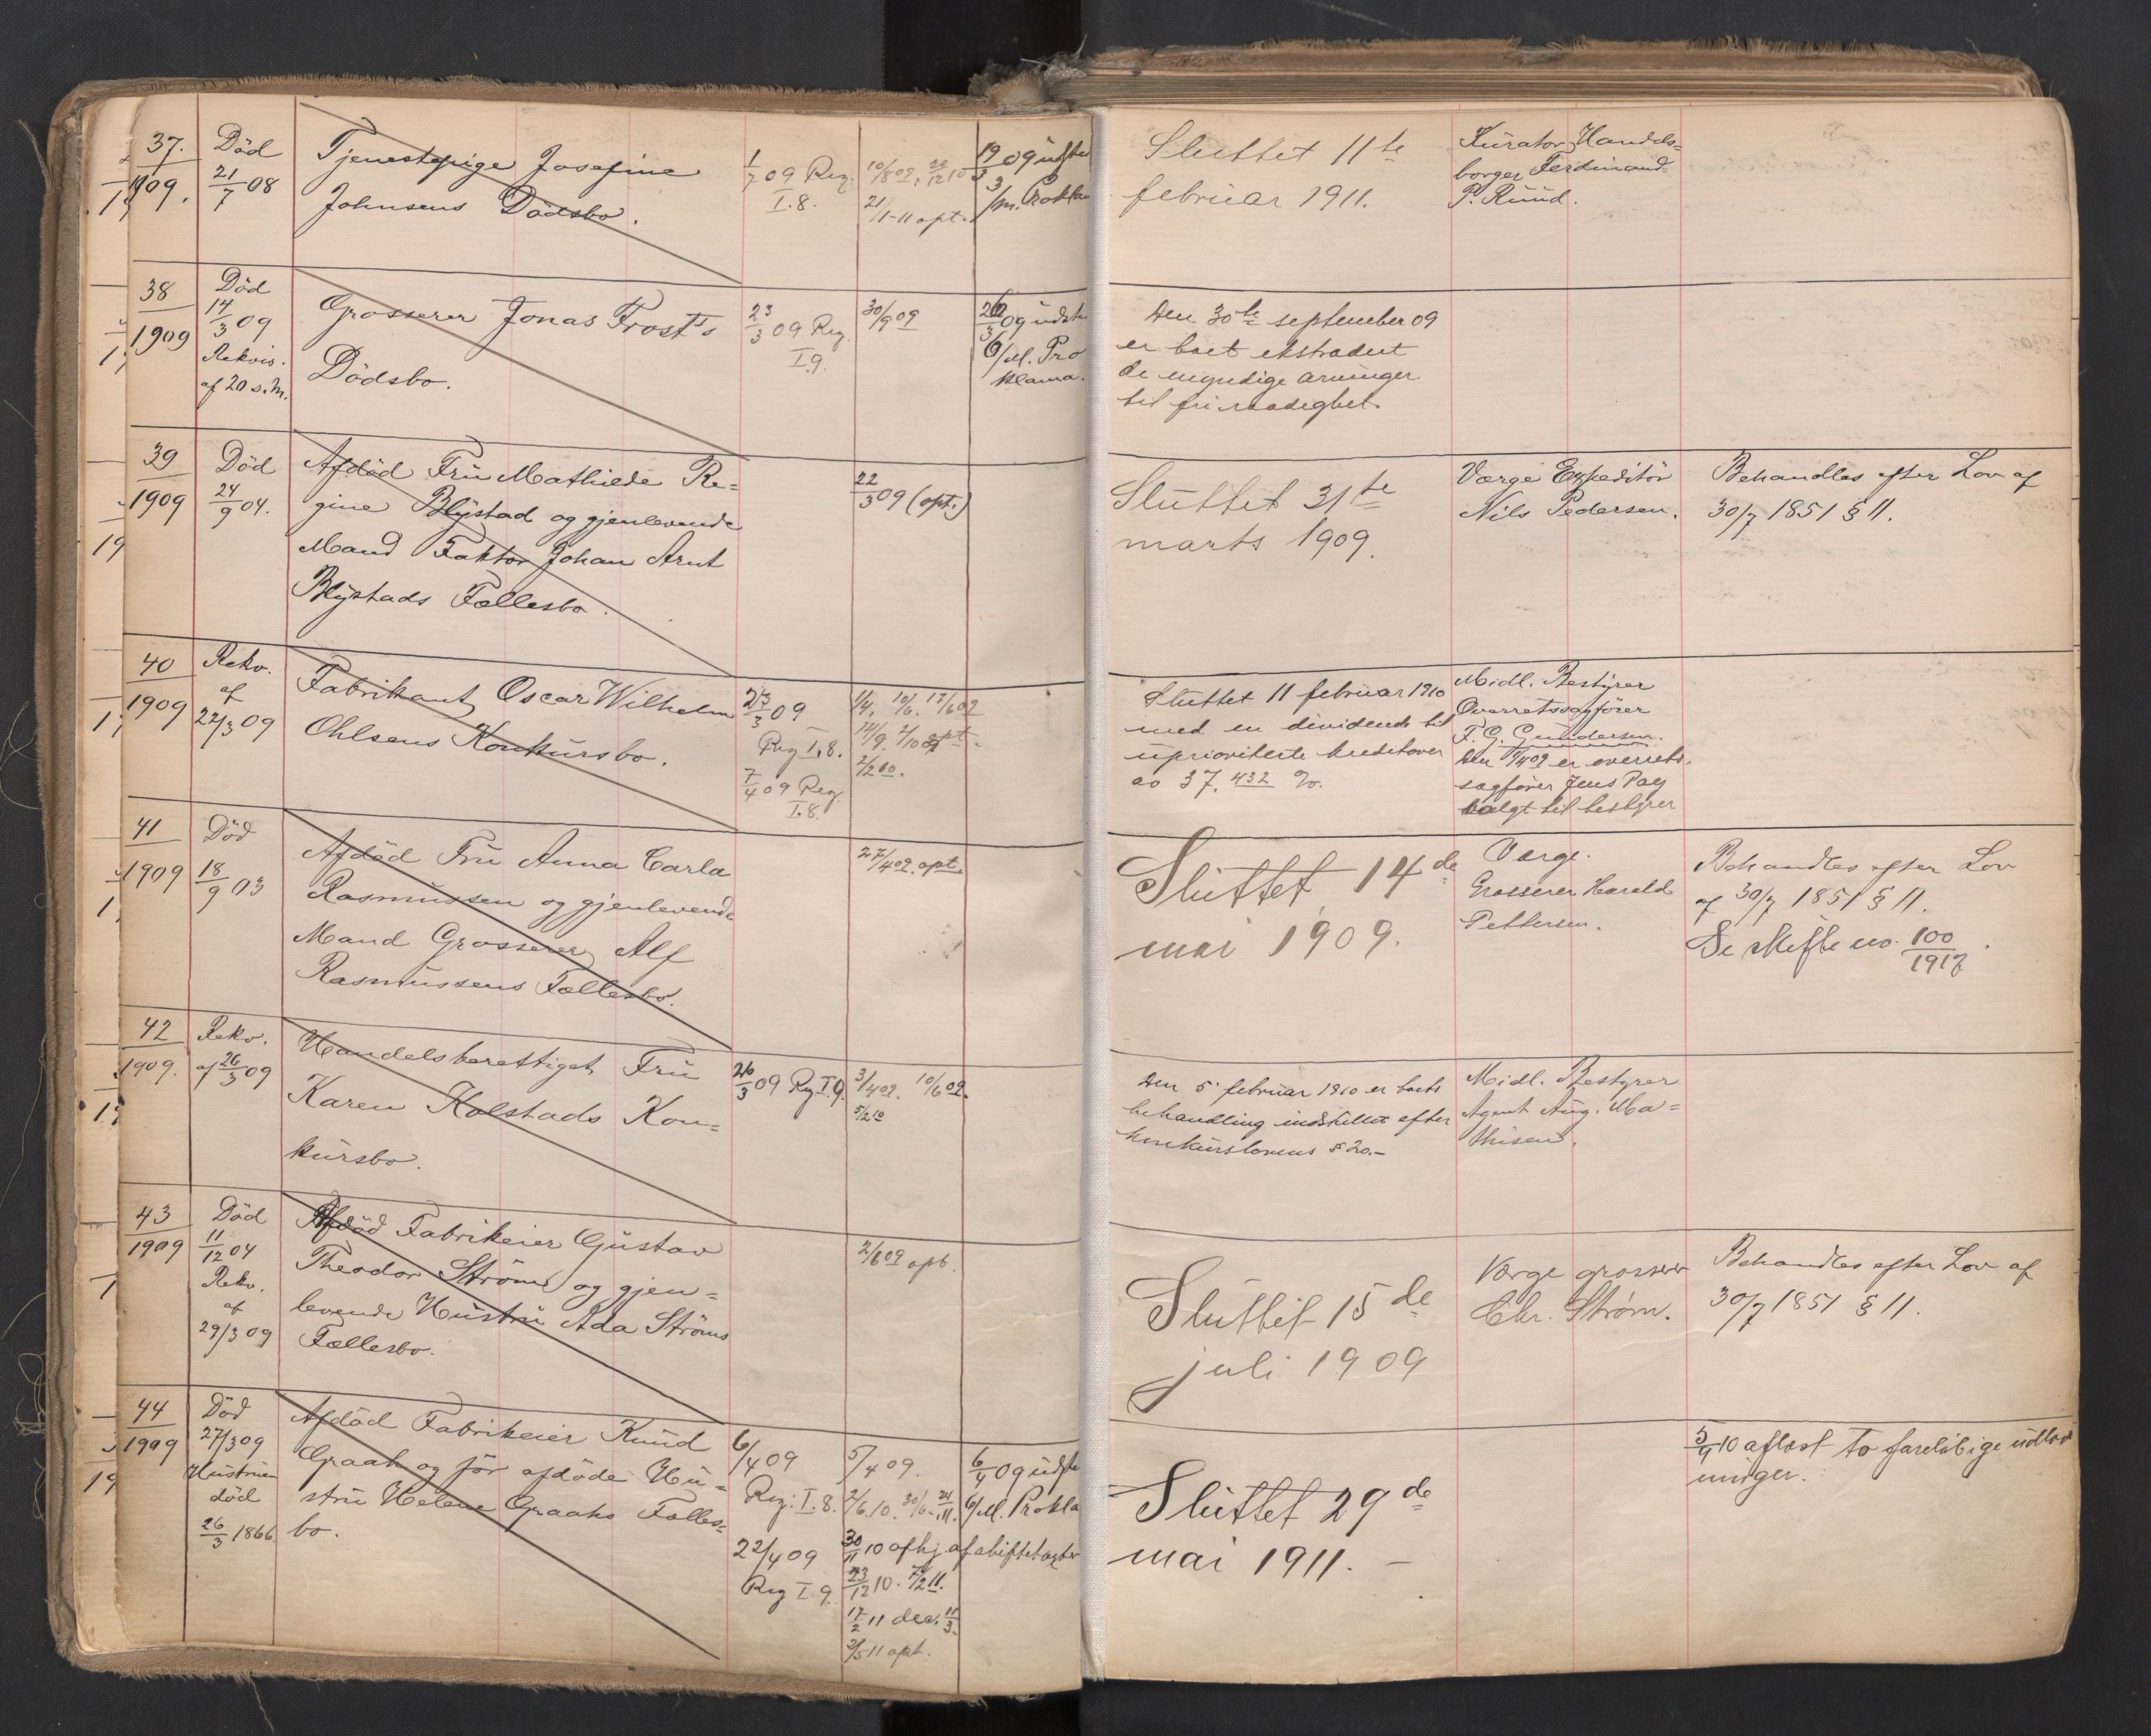 37.
1909.
Död
21/7 08
Tjenestepige Josefine
Johnsens Dödsbo.
1/7 09 Reg.
I.8.
10/8 09.
21/11-11 opt.
19/3 09 udste
3/m. Prokla
Sluttet 11te
februar 1911.
Kurator, Handels=
borger Ferdinand
P. Ruud.
38
1909
Död
14/3 09
Rekvis.
af 20 s.M.
Grosserer Jonas Frost's
Dödsbo.
23/3 09 Reg
I.9.
30/9 09
26/3 09 udste
6/M. Pro
klama.
Den 30te september 09
er boet ekstradert
de myndige arvinger
til fri raadighet.
39
1909
Död
24/9 04.
Afdöd Fru Mathilde Re=
gine Blystad og gjenlevende
Mand Faktor Johan Arnt
Blystads Fællesbo.
22/3 09 (opt.)
Sluttet 31te
marts 1909.
Værge Expeditör
Nils Pedersen.
Behandles efter Lov af
30/7 1851 § 11.
40
1909
Rekv.
af
22/3 09
Fabrikant Oscar Wilhelm
Ohlsens Konkursbo.
23/3 09
Reg I.8.
7/4 09 Reg.
I.8.
1/4. 10/6. 17/6 09
14/9. 2/10 09 opt.
2/2 10.
Sluttet 11 februar 1910
med en dividende til
uprioriterte kreditorer
av 37.432 %.
Midl. Bestyrer
Overretssagfører
F. G. Gundersen.
Den 1/4 09 er overrets-
sagfører Jens Pay
valgt til bestyrer
41
1909
Död
18/9 03
Afdöd Fru Anna Carla
Rasmussen og gjenlevende
Mand Grosserer Alf
Rasmussens Fællesbo.
27/4 09. opt.
Sluttet 14de
mai 1909.
Værge.
Grosserer Harald
Pettersen.
Behandles efter Lov
af 30/7 1851 § 11.
Se skifte no. 100/1917.
42
1909.
Rekv.
af 26/3 09
Handelsberettiget Fru
Karen Kolstads Kon=
kursbo.
26/3 09 Reg I.9.
3/4 09. 10/6 09.
5/2 10
Den 5 februar 1910 er boets
behandling indstillet efter
konkurslovens § 20.-
Midl. Bestyrer
Agent Aug. Ma=
thisen.
43
1909
Död
11/12 04
Rekv.
af
29/3 09
Afdöd Fabrikeier Gustav
Theodor Ströms og gjen=
levende Hustru Ada Ströms
Fællesbo.
2/6 09 opt.
Sluttet 15de
juli 1909
Værge grosserer
Chr. Strøm.
Behandles efter Lov af
30/7 1851 § 11.
44
1909
Död
27/3 09
Hustruen
död
26/3 1866
Afdöd Fabrikeier Knud
Graah og för afdöde Hu=
stru Helene Graahs Fælles=
bo.
6/4 09
Reg: I.8.
22/4 09
Reg I.9.
5/4 09.
2/6 10.
30/11 10 afhj. af skifteta
23/12 10. 7/2 11.
17/2 11 dec. 11/3.
2/5 11 opt.
6/4 09 udste
6/M. Prokla
Sluttet 29de
mai 1911. -
5/4 10 aflæst to foreløbige udlod
ninger.